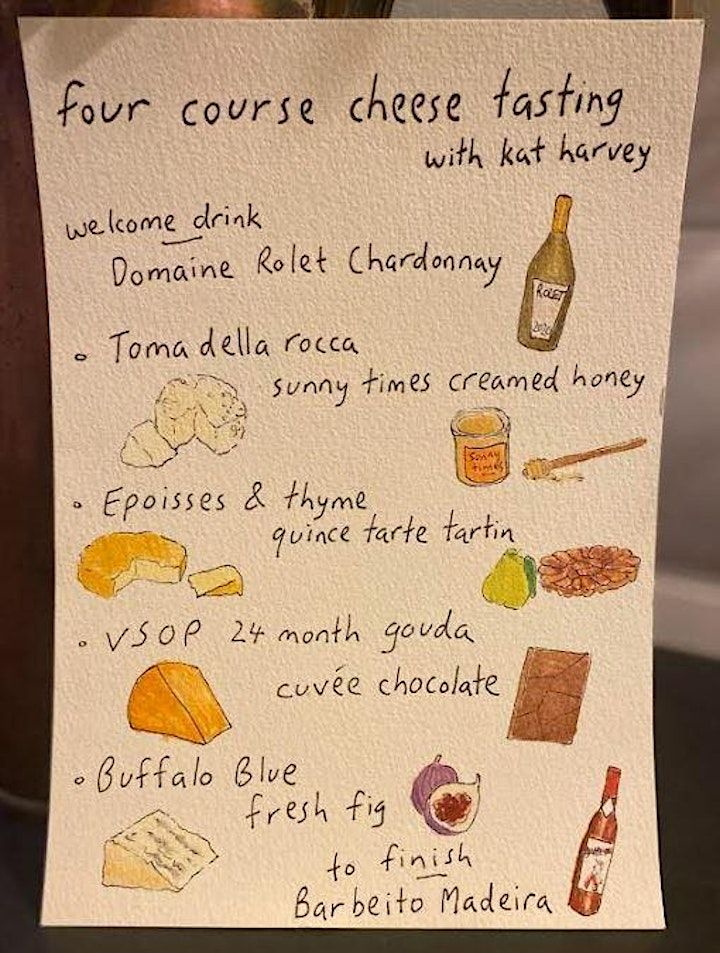 four course cheese tasting
with kat harvey
welcome drink
Domaine Rolet Chardonnay
ROLET
2020
Toma della rocca
sunny times creamed honey
Sunny
times
Epoisses & thyme
quince tarte tartin
VSOP 24 month gouda
cuvée chocolate
Buffalo Blue
fresh fig
to finish
Barbeito Madeira